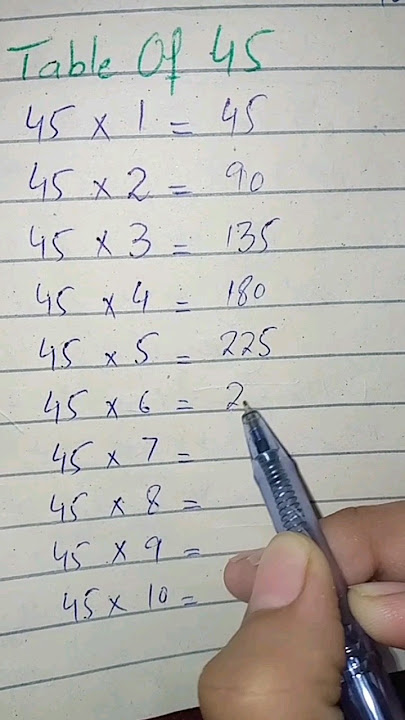 Table Of 45
45 × 1 = 45
45 × 2 = 90
45 × 3 = 135
45 × 4 = 180
45 × 5 = 225
45 × 6 = 2
45 × 7 =
45 × 8 =
45 × 9 =
45 × 10 =